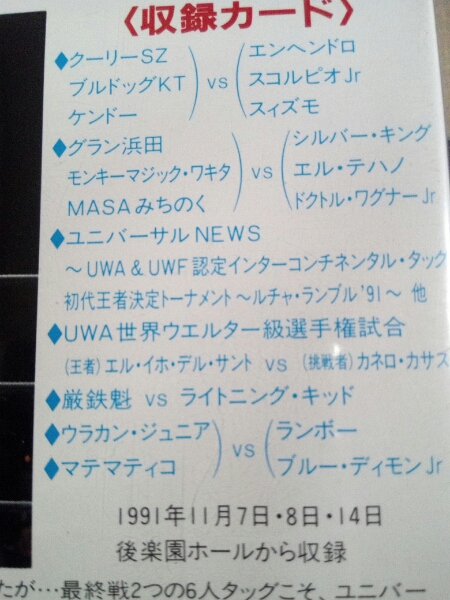 〈収録カード〉
◆クーリーSZ
ブルドッグKT
ケンドー
vs
エンヘンドロ
スコルピオJr
スィズモ
◆グラン浜田
モンキーマジック・ワキタ
MASAみちのく
vs
シルバー・キング
エル・テハノ
ドクトル・ワグナーJr
◆ユニバーサルNEWS
～UWA&UWF認定インターコンチネンタル・タッグ
初代王者決定トーナメント～ルチャ・ランブル'91～ 他
◆UWA世界ウエルター級選手権試合
(王者)エル・イホ・デル・サント vs (挑戦者)カネロ・カサス
◆厳鉄魁 vs ライトニング・キッド
◆ウラカン・ジュニア
◆マテマティコ
vs
ランボー
ブルー・ディモンJr
1991年11月7日・8日・14日
後楽園ホールから収録
たが…最終戦2つの6人タッグこそ、ユニバー